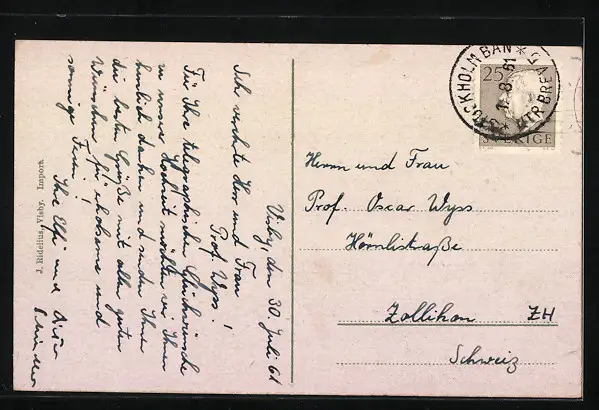 Visby, den 30. Juli 61
Sehr verehrte Herr und Frau
Prof. Wyss!
Für Ihre telegraphischen Glückwünsche
zu unserer Hochzeit möchten wir Ihnen
herzlich danken und senden Ihnen
die besten Grüße mit allen guten
Wünschen für erholsame und
sonnige Ferien!
Ihre Elfi und
J. Ridelius, Visby. Import.
STOCKHOLM BAN
1.8.61
UTR BREV
25
SVERIGE
Herrn und Frau
Prof. Oscar Wyss
Hörnlistraße
Zollikon ZH
Schweiz